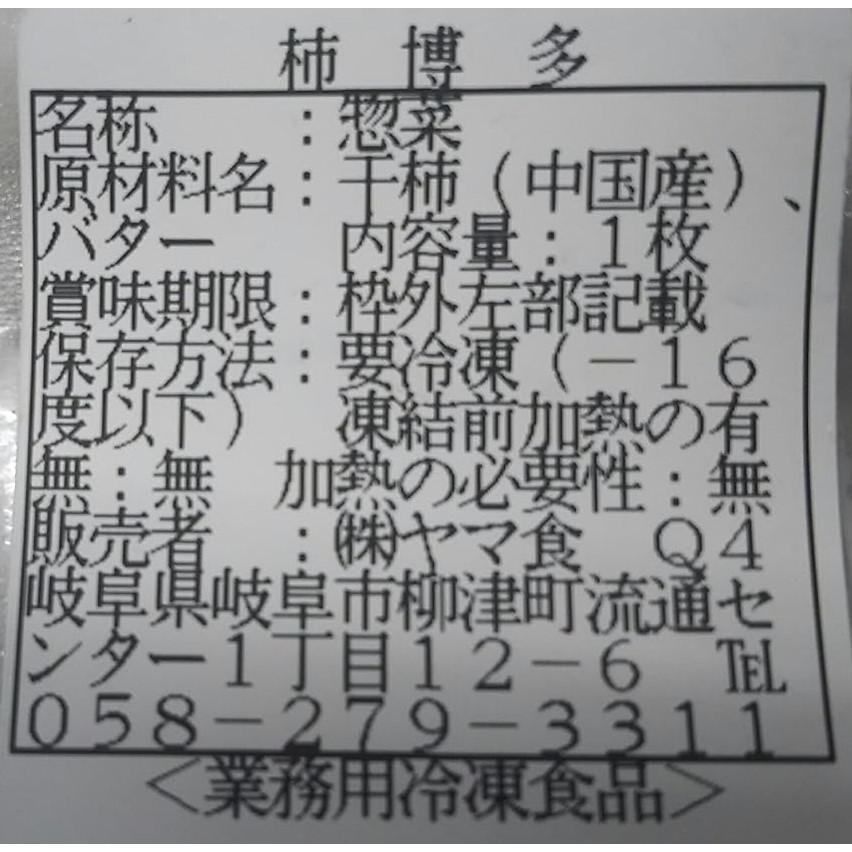 柿博多
名称　　：惣菜
原材料名：干柿（中国産）、
バター　　内容量：１枚
賞味期限：枠外左部記載
保存方法：要冷凍（－１６
度以下）　凍結前加熱の有
無：無　加熱の必要性：無
販売者　：㈱ヤマ食　Ｑ４
岐阜県岐阜市柳津町流通セ
ンター１丁目１２－６　℡
０５８－２７９－３３１１
＜業務用冷凍食品＞